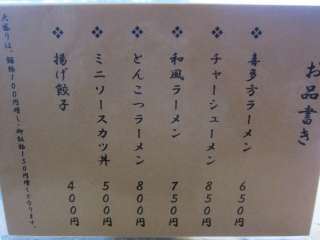 お品書き
❖ 喜多方ラーメン 650円
❖ チャーシューメン 850円
❖ 和風ラーメン 750円
❖ とんこつラーメン 800円
❖ ミニソースカツ丼 500円
❖ 揚げ餃子 400円
大盛りは、麺類100円増し、御飯類150円増しとなります。